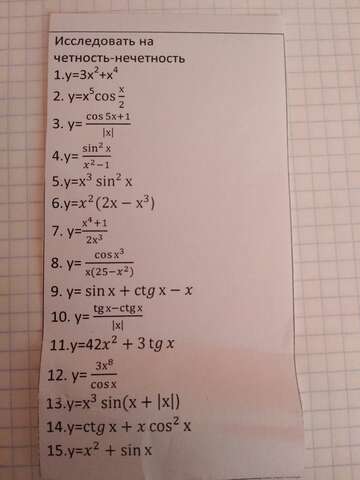 Исследовать на
четность-нечетность
1.y=3x²+x⁴
2. y=x⁵cos x/2
3. y= cos 5x+1 / |x|
4.y= sin² x / x²−1
5.y=x³ sin² x
6.y=x²(2x − x³)
7. y= x⁴+1 / 2x³
8. y= cos x³ / x(25−x²)
9. y= sin x + ctg x − x
10. y= tg x−ctg x / |x|
11.y=42x² + 3 tg x
12. y= 3x⁸ / cos x
13.y=x³ sin(x + |x|)
14.y=ctg x + x cos² x
15.y=x² + sin x